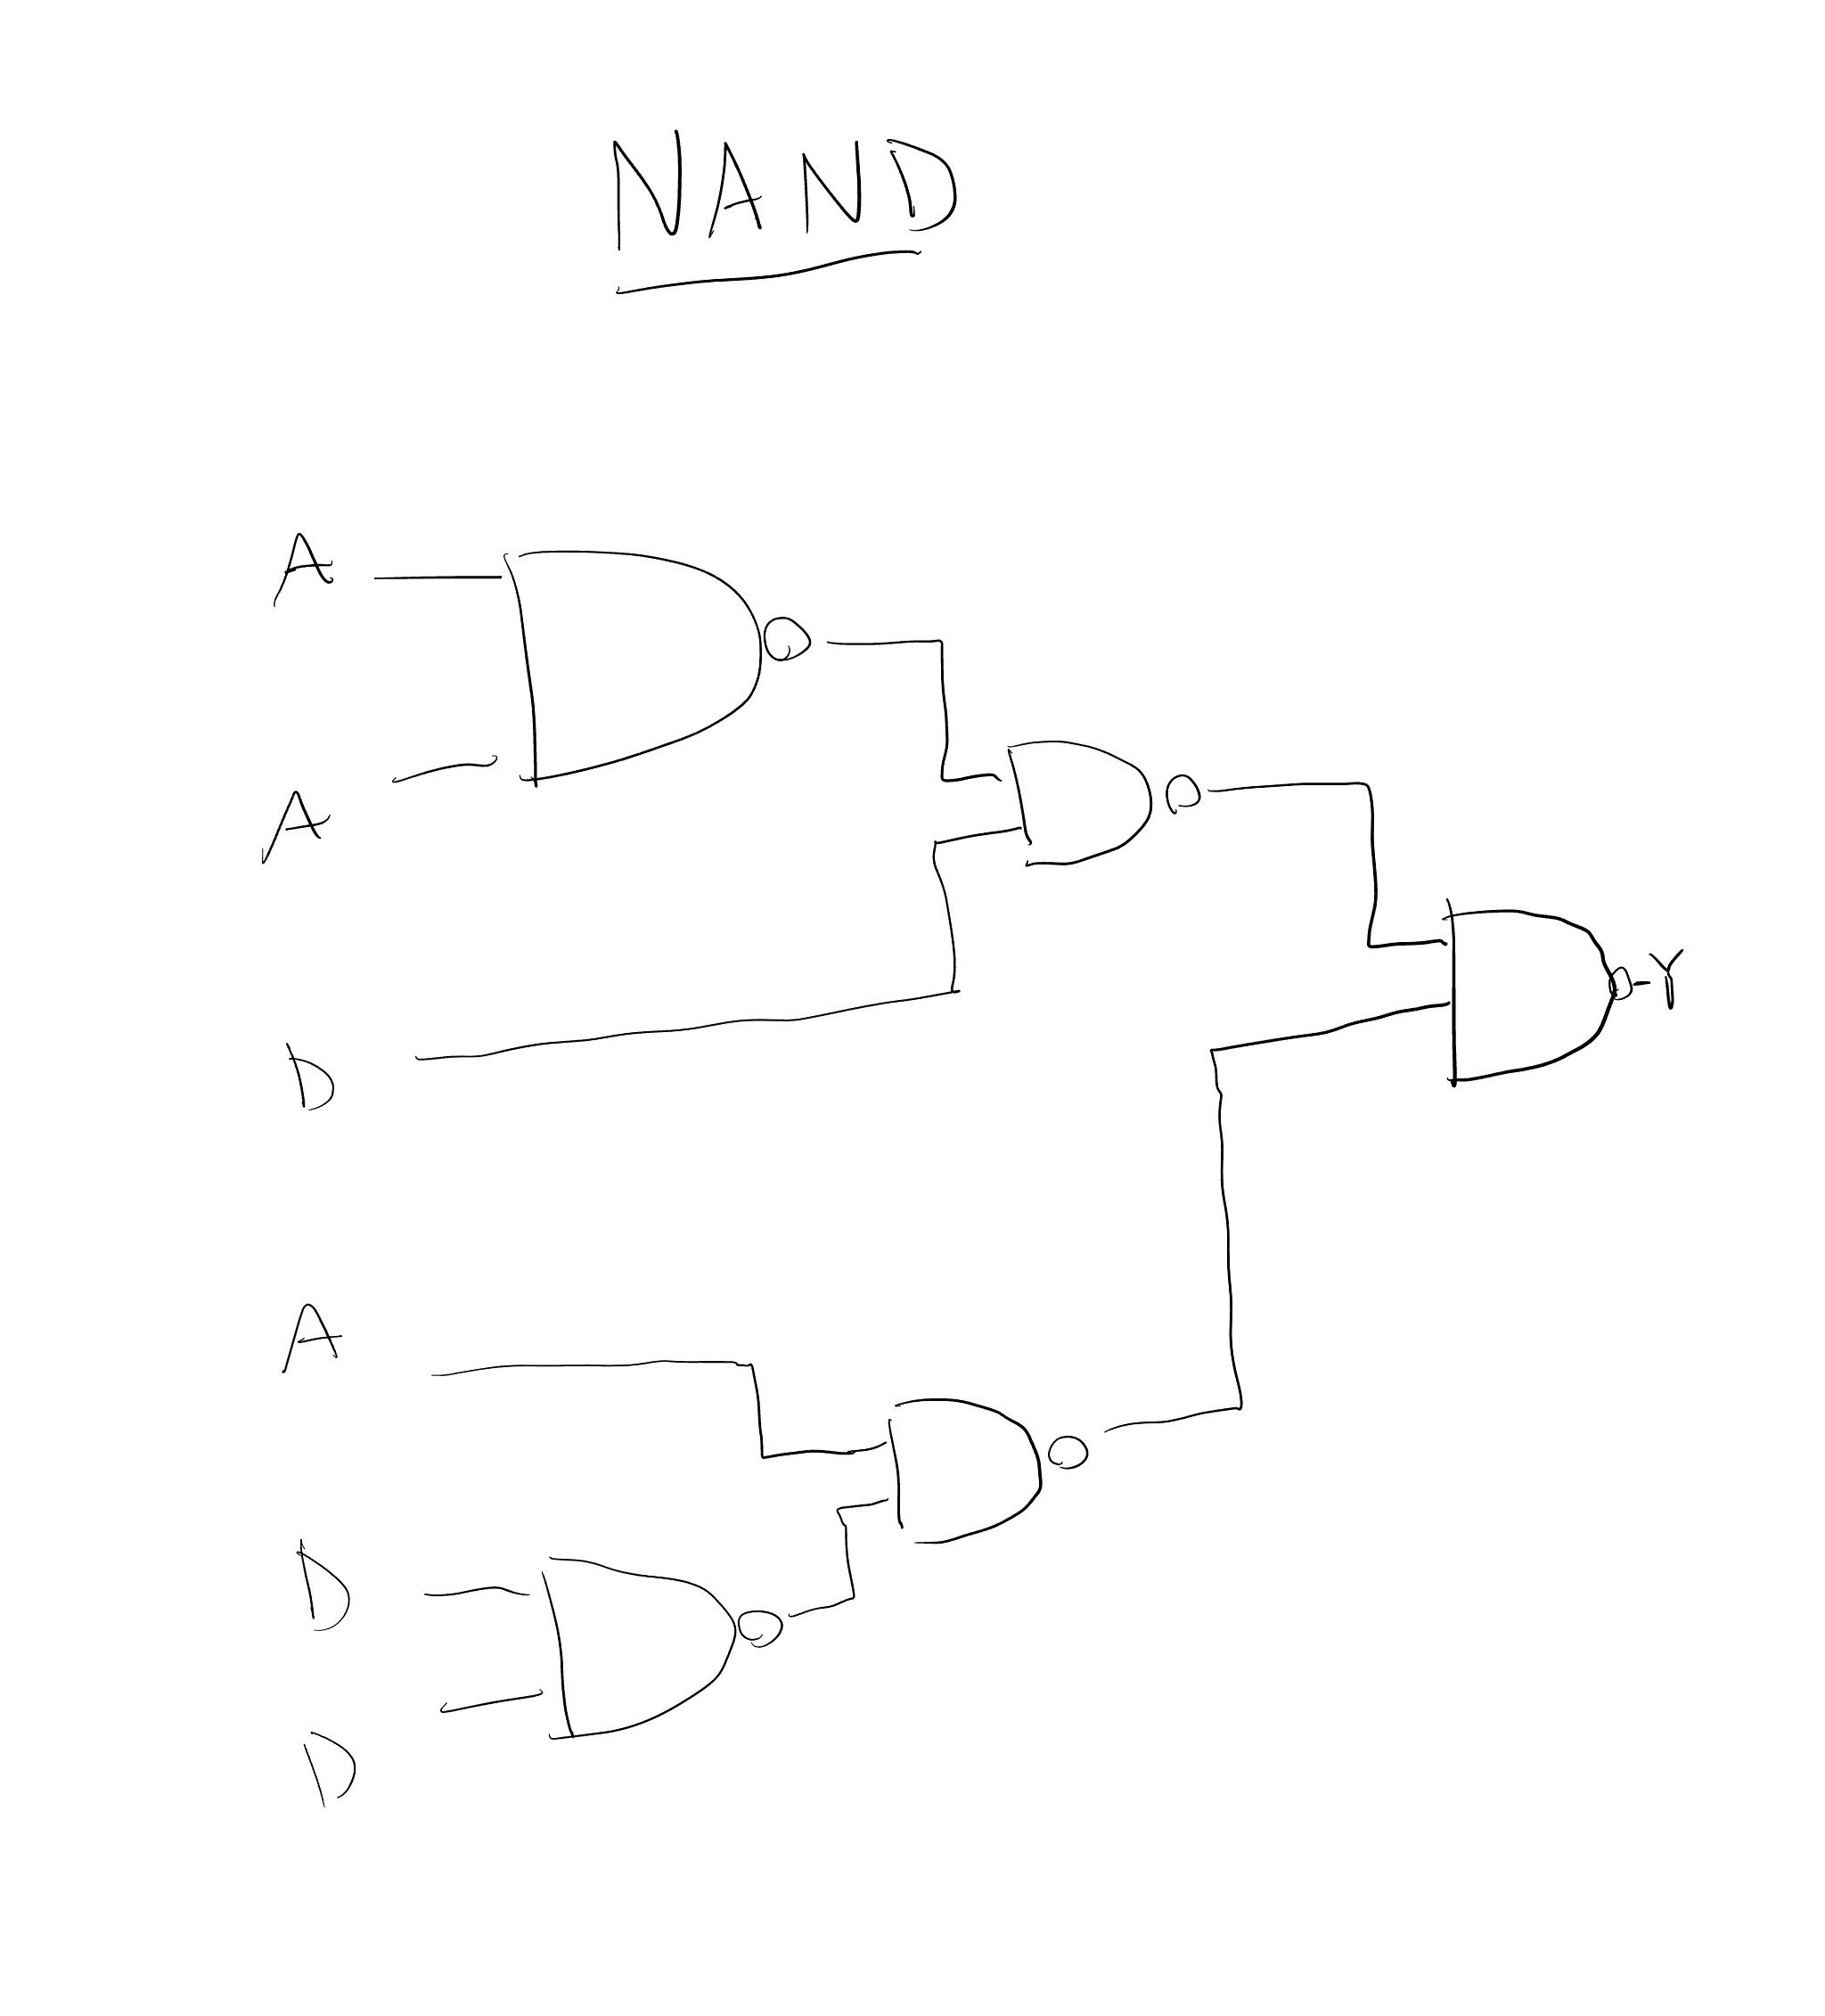 NAND
A
A
Y
D
A
D
D